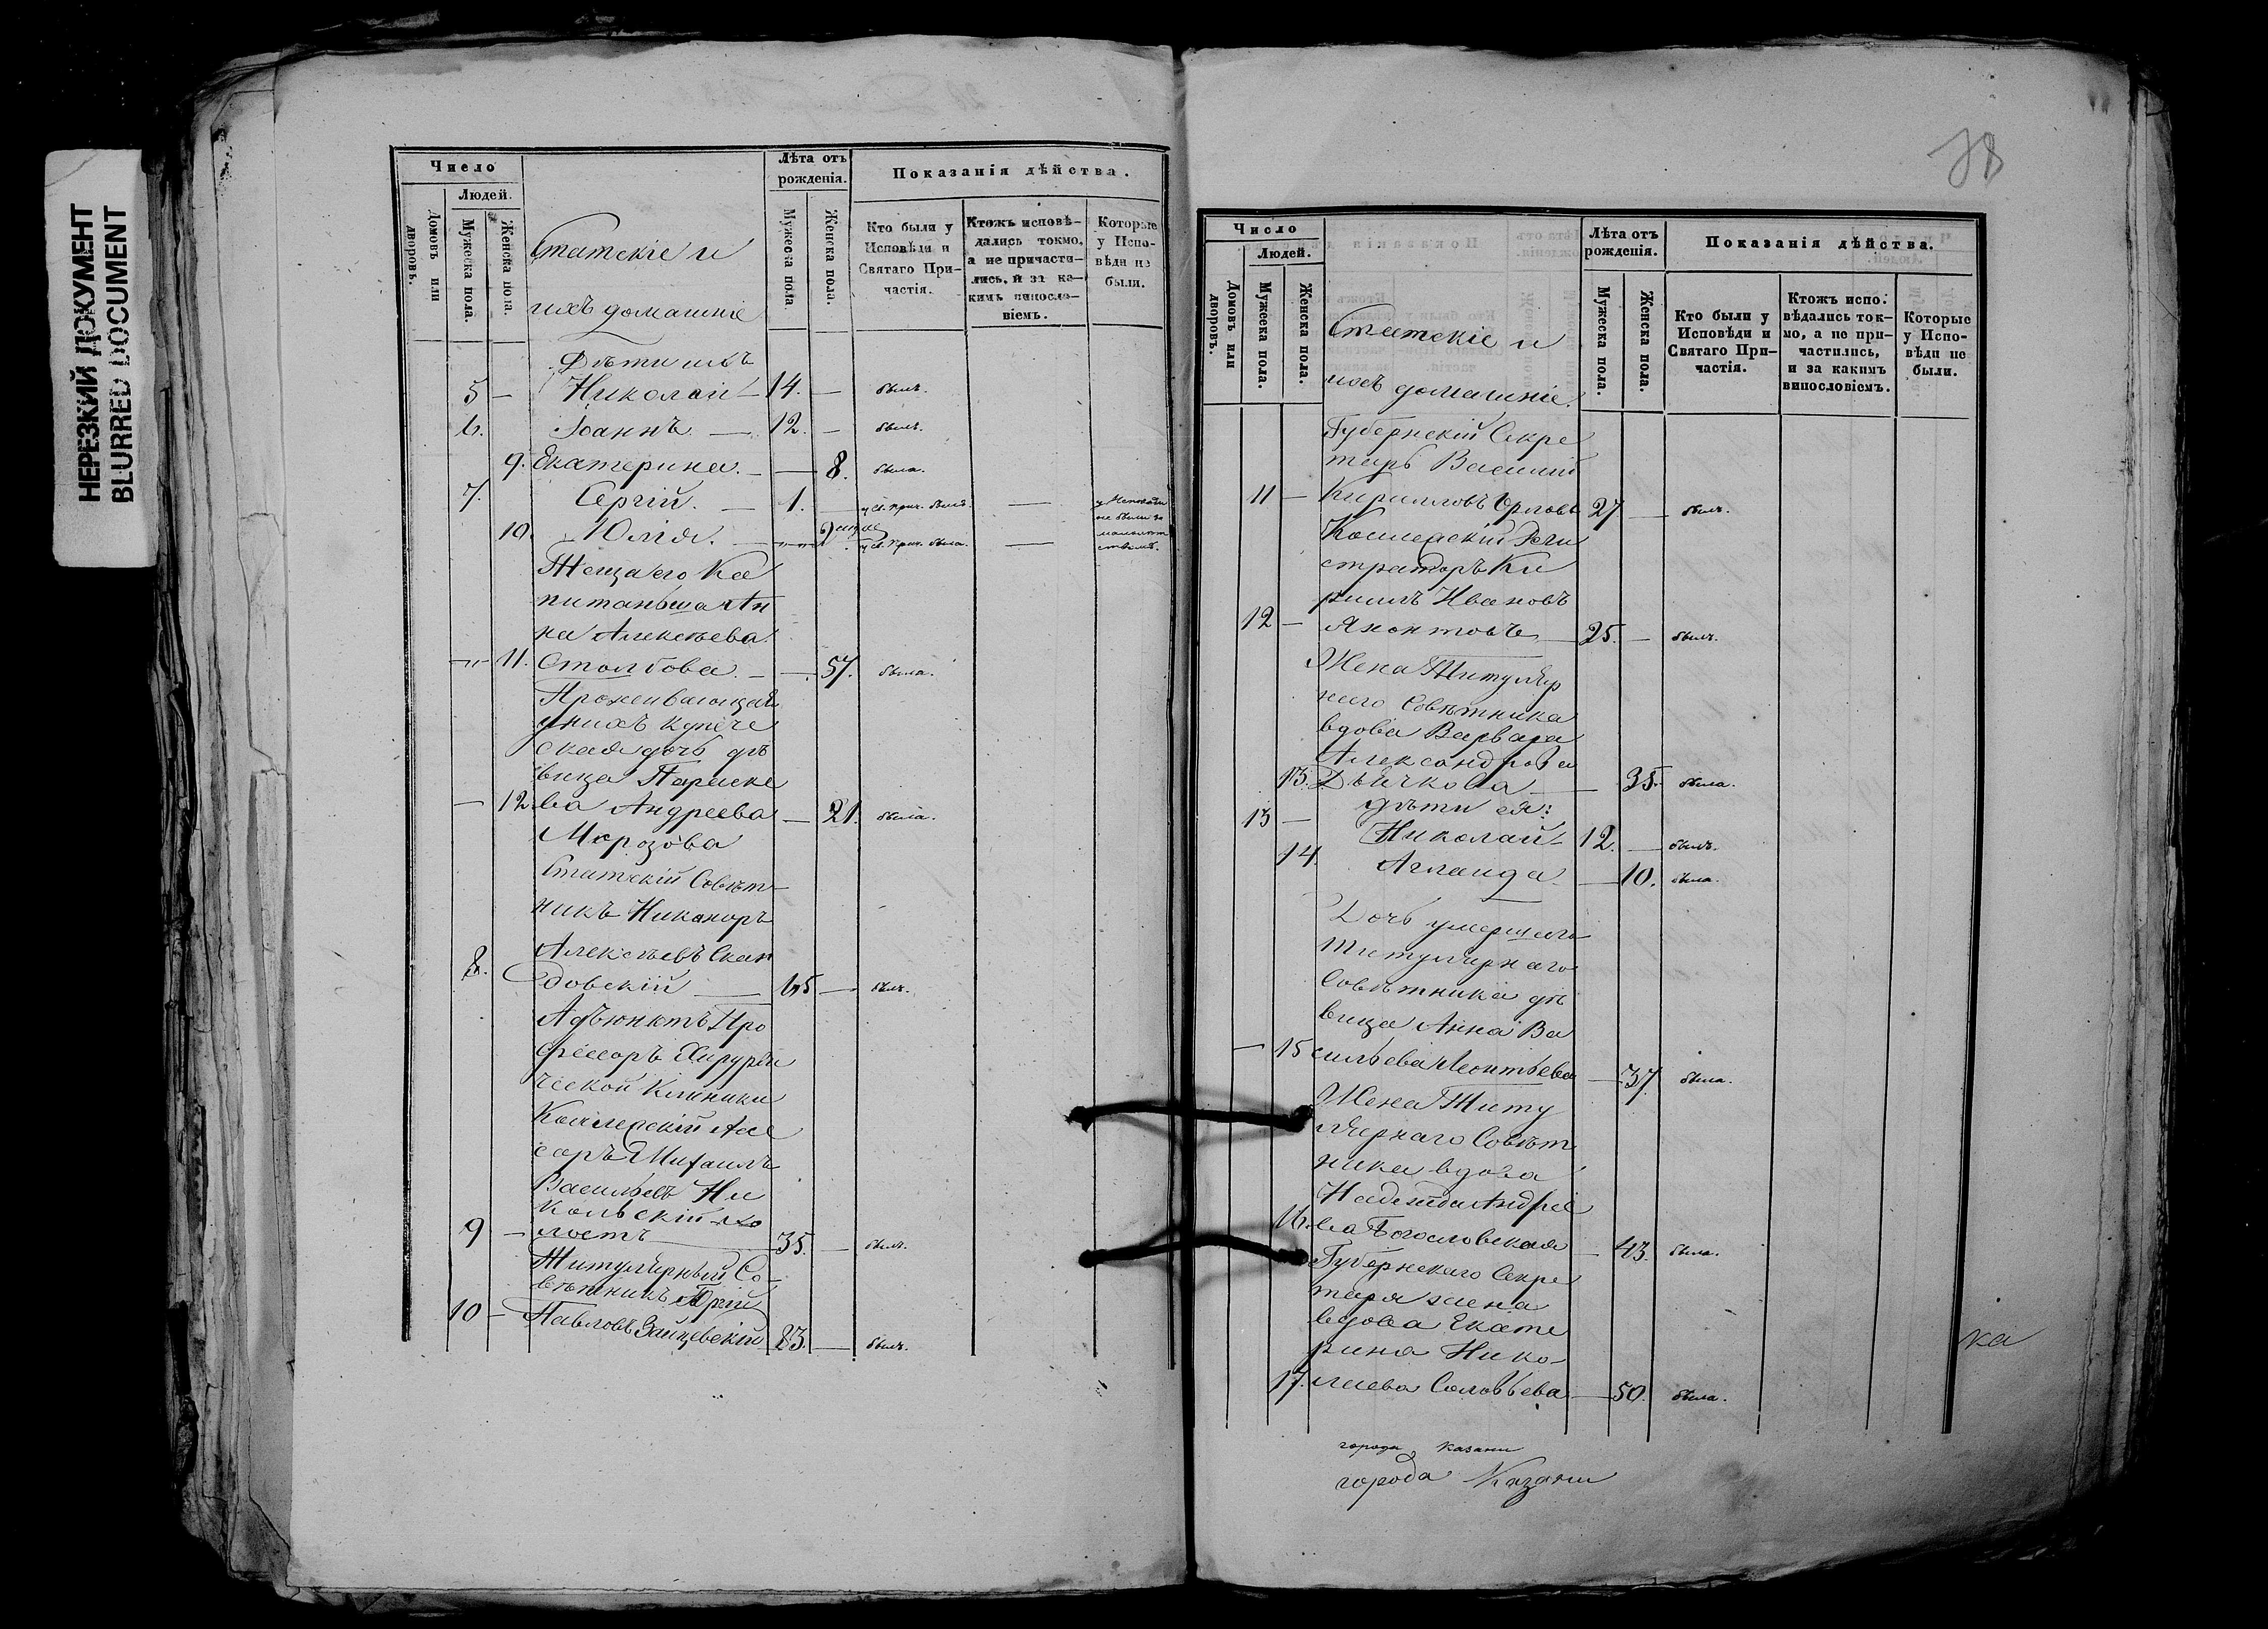 НЕРЕЗКИЙ ДОКУМЕНТ
BLURRED DOCUMENT
Число
Людей.
Домовъ или дворовъ.
Мужеска пола.
Женска пола.
Статскіе и
ихъ домашніе
Лѣта отъ
рожденія.
Мужеска пола
Женска пола.
Показанія дѣйства.
Кто были у
Исповѣди и
Святаго При-
частія.
Ктожъ исповѣ-
дались токмо,
а не причасти-
лись, и за ка-
кимъ винословіемъ.
Которые
у Испо-
вѣди не
были.
Дѣти ихъ
5 — Николай — 14. — былъ.
6. Іоаннъ. — 12. — былъ.
9. Екатерина. — — 8. была.
7. Сергій. — 1. — у Св. Прич. былъ. — у Исповѣди
не были за
10. Юлія. — у Св. Прич. была. — малолѣт
ствомъ.
Теща его Ка
питанша Ан
на Алексѣева
11. Столбова. — — 57. была.
Проживающая
у нихъ купече
ская дочь дѣ
вица Параске
— 12 ва Андреева — 21. была.
Морозова
Статскій Совѣт-
никъ Никаноръ
Алексѣевъ Скан
8. довскій — 65 — былъ.
Адъюнктъ Про
фессоръ Хирурги
ческой Клиники
Коллежскій Асе
соръ Михаилъ
Васильевъ Ни
кольскій хо
9 — лостъ — 35. — былъ.
Титулярный Со-
вѣтникъ
10 — Павловъ Зайцевскій 83. — былъ.
78
Число
Людей.
Домовъ или дворовъ.
Мужеска пола.
Женска пола.
Статскіе и
ихъ домашніе.
Лѣта отъ
рожденія.
Мужеска пола.
Женска пола.
Показанія дѣйства.
Кто были у
Исповѣди и
Святаго При-
частія.
Ктожъ испо-
вѣдались ток-
мо, а не при-
частились,
и за какимъ
винословіемъ.
Которые
у Испо-
вѣди не
были.
Губернскій Секре
тарь Василій
11 — Кирилловъ Орловъ 27 — былъ.
Коллежскій Реги
страторъ Ки
риллъ Ивановъ
12 — Яхонтовъ — 25. — былъ.
Жена Титуляр
наго Совѣтника
вдова Варвара
Александрова
13. Дьячкова — 35. была.
дѣти ея:
13 — Николай — 12. — былъ.
14. Аглаида — 10. была.
Дочь умершаго
Титулярнаго
Совѣтника дѣ
вица Анна Ва
— 15 сильева Леонтьева — 37. была.
Жена Титу
лярнаго Совѣт
ника вдова
Надежда Андрее
16. ва Богословская — 43. была.
Губернскаго Секре
таря жена
вдова Екате
рина Нико-
17. лаева Соловьева — 50. была.
ка
города Казани
города Казани